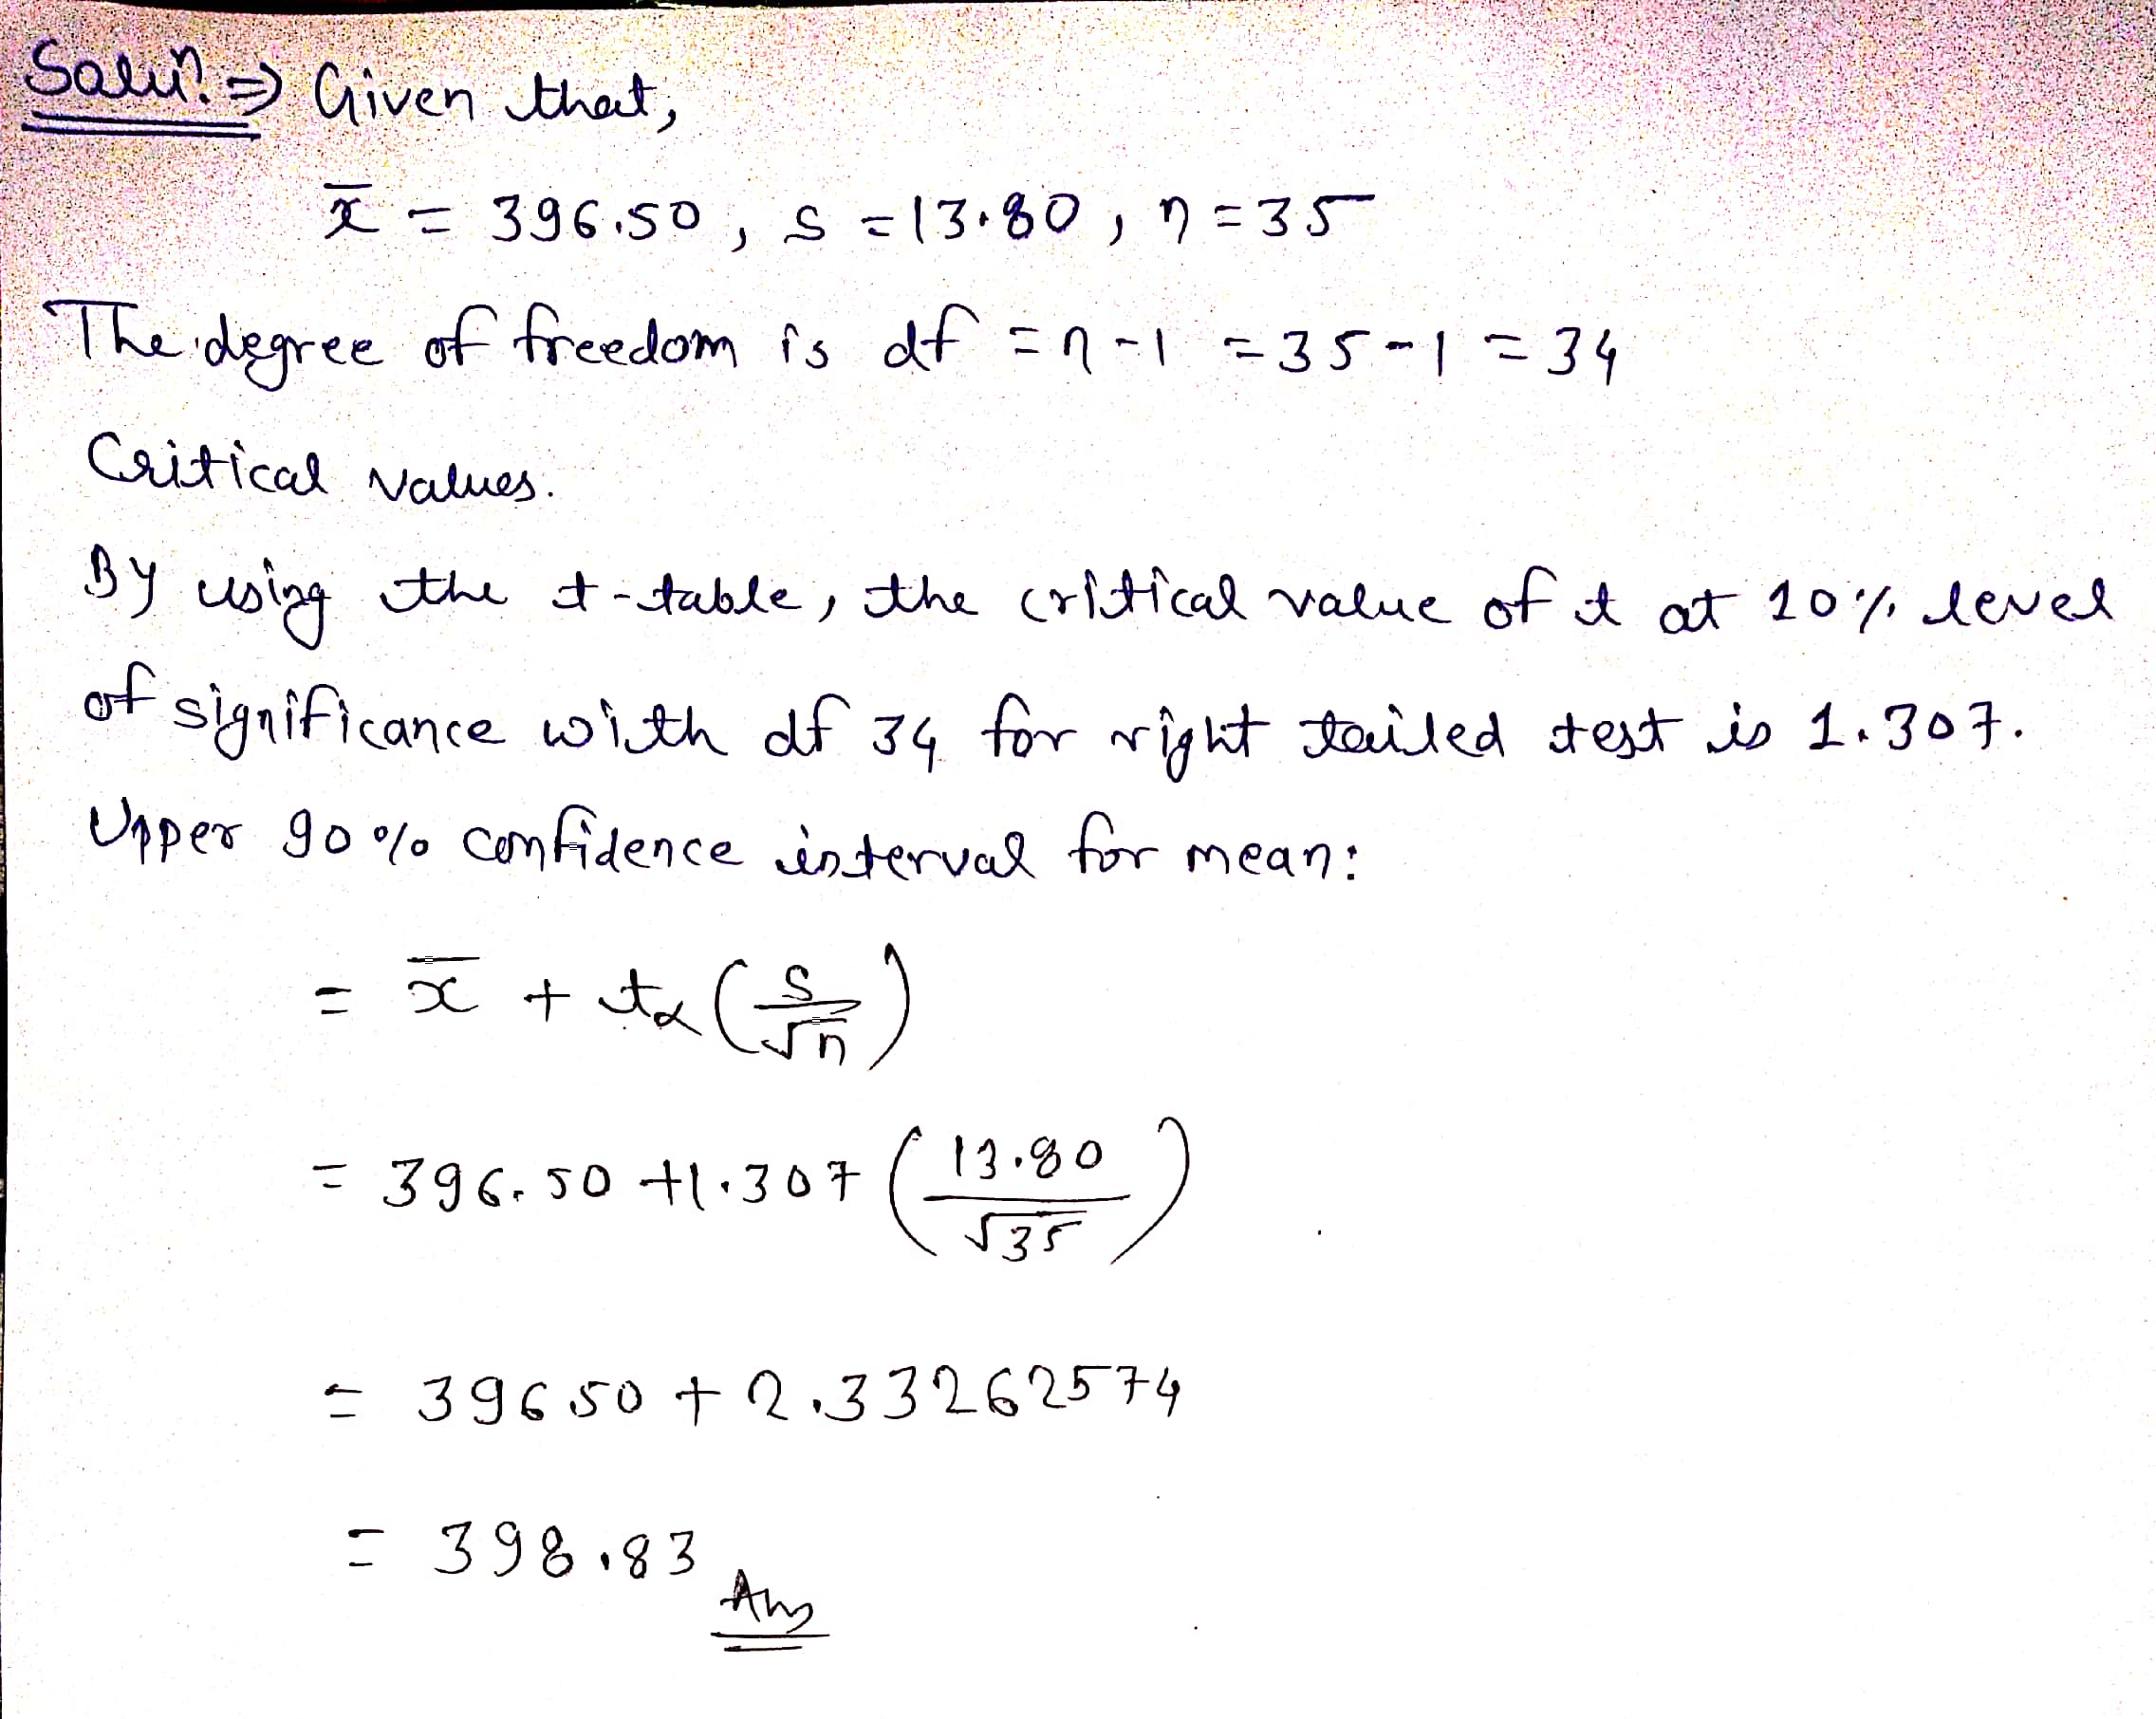 Solun. ⇒ Given that,
x̄ = 396.50, s = 13.80, n = 35
The degree of freedom is df = n-1 = 35-1 = 34
Critical values.
By using the t-table, the critical value of t at 10% level
of significance with df 34 for right tailed test is 1.307.
Upper 90% confidence interval for mean:
= x̄ + tα (s/√n)
= 396.50 + 1.307 (13.80/√35)
= 396.50 + 2.33262574
= 398.83 Ans